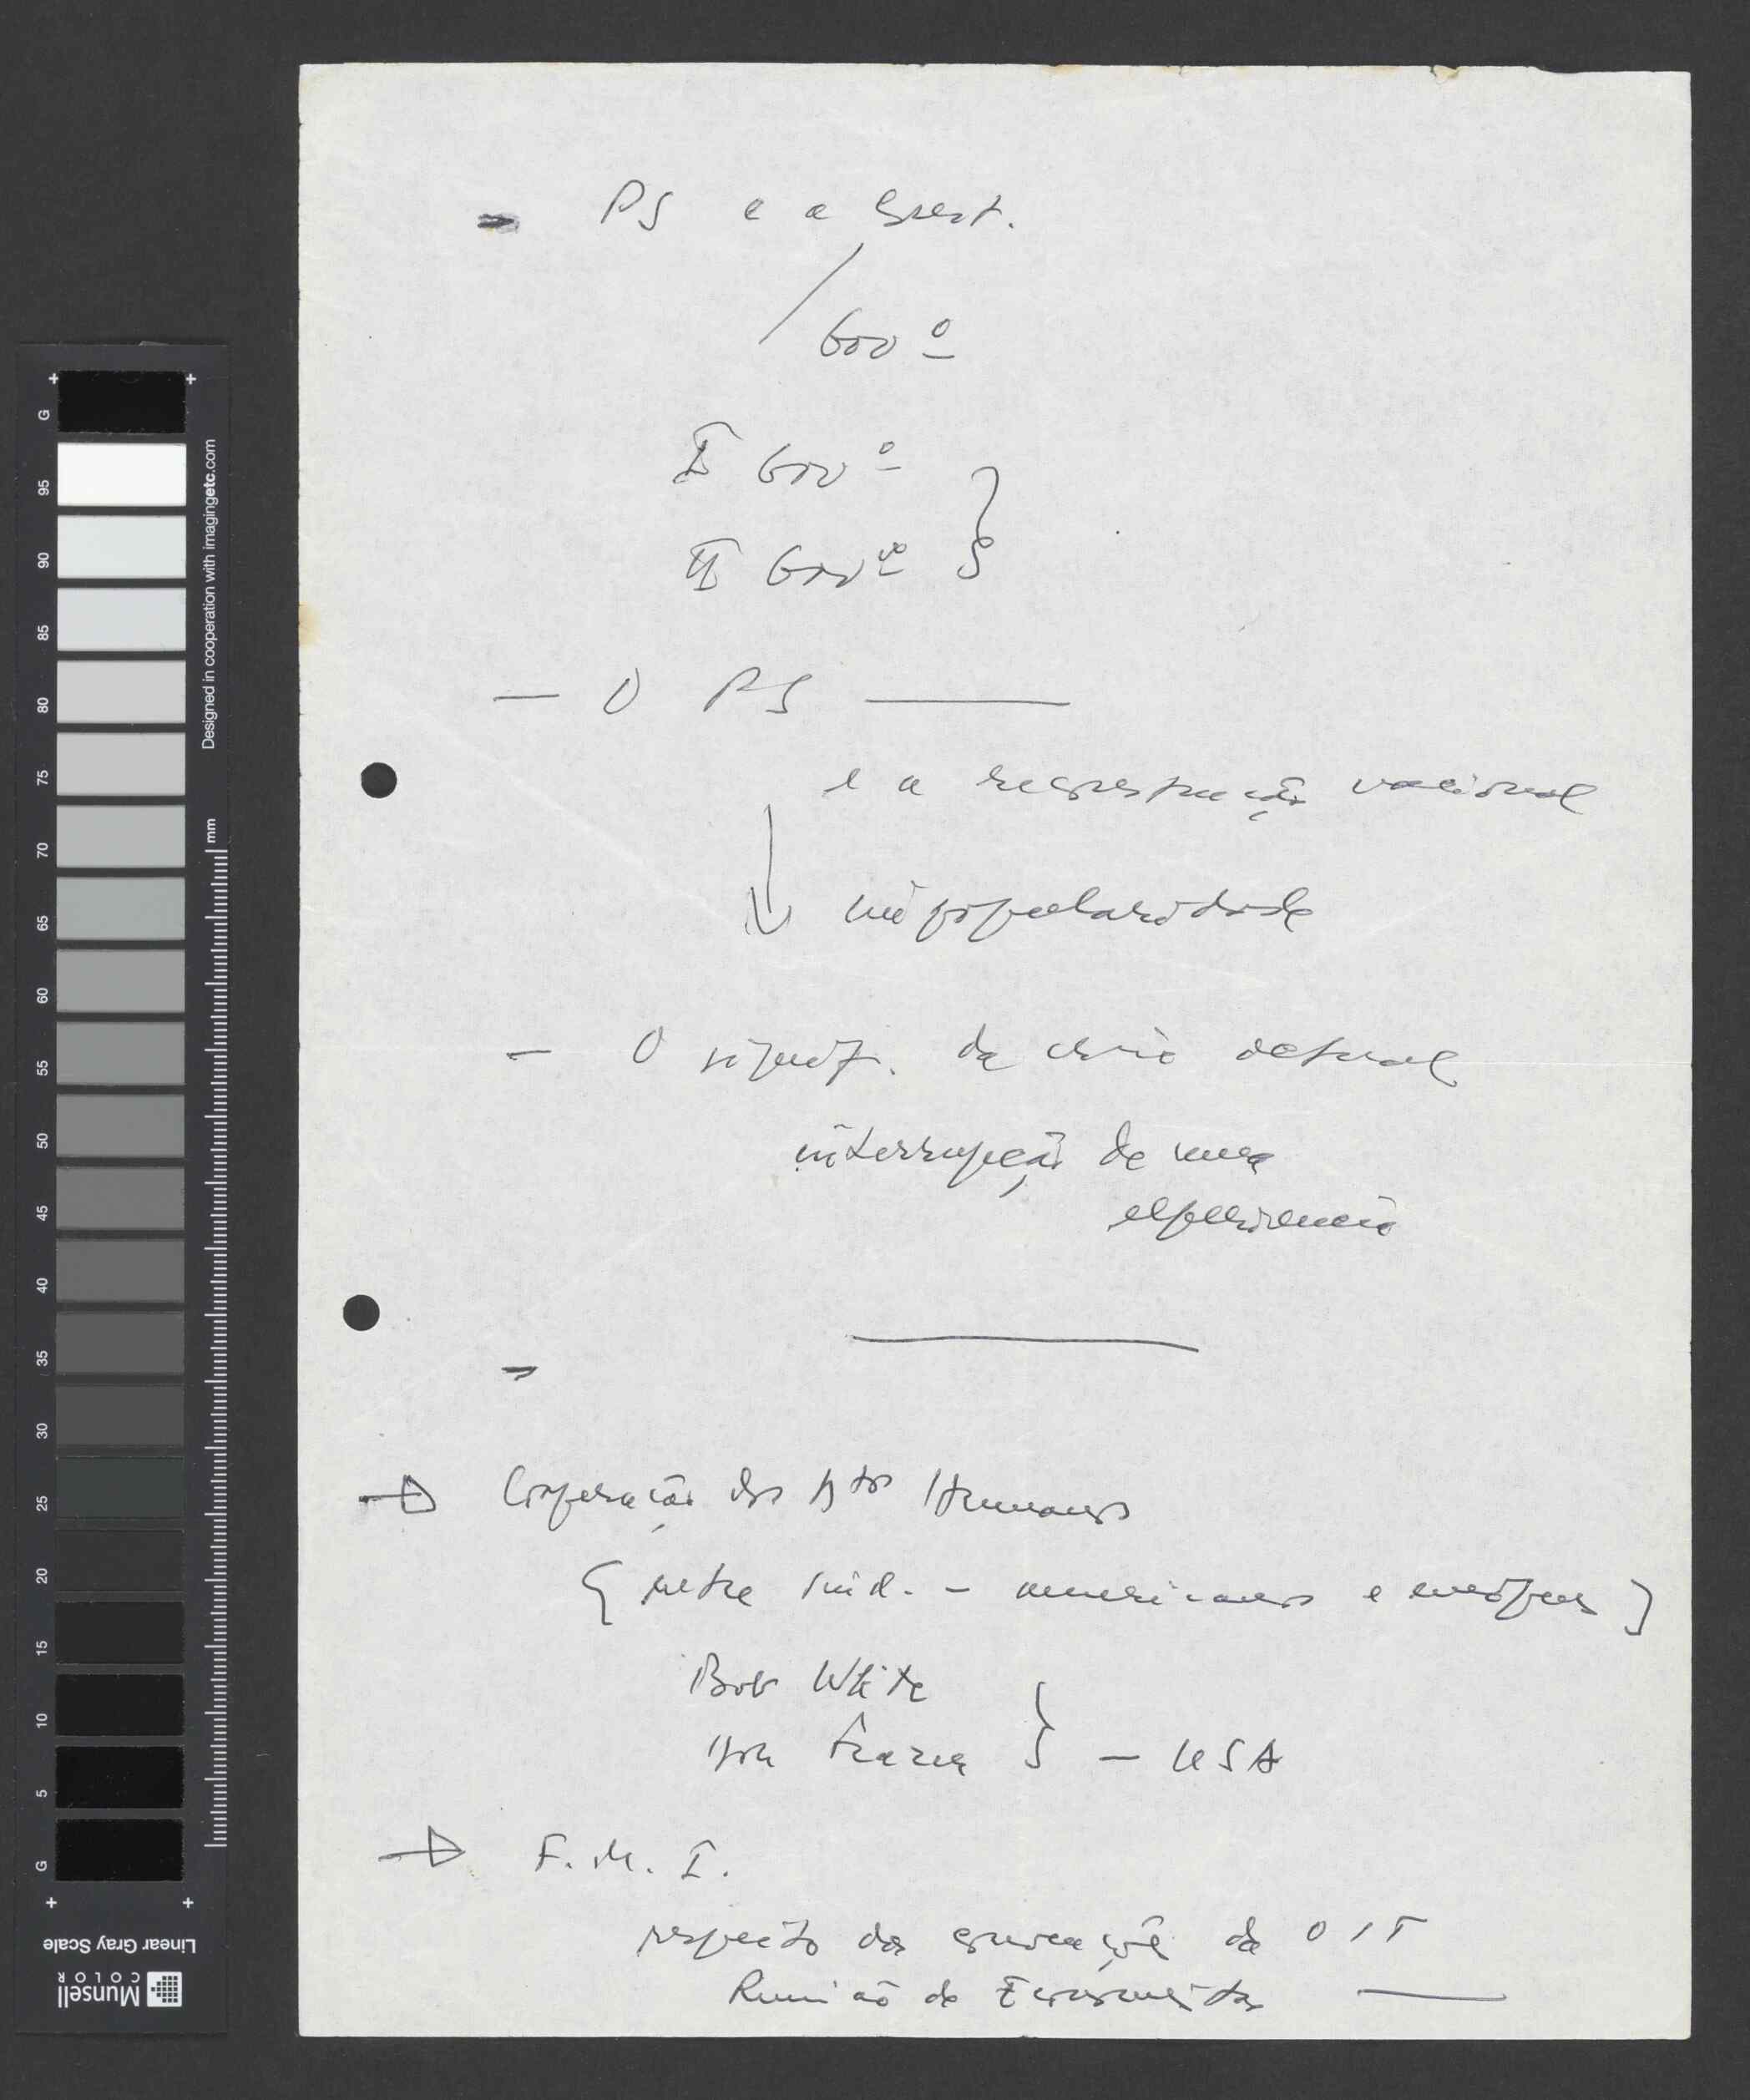 PS e a Const.
Govº
I Govº
II Govº
— O PS —
e a reconstrução nacional
impopularidade
— O signif. da crise actual
interrupção de uma
experiência
Cooperação dos Dtos Humanos
{ entre sind. - americanos e europeus }
Bob White
} — USA
F. M. I.
respeito das convenções da OIT
Reunião de Economistas —
G
95
90
85
80
75
70
65
60
55
50
45
40
35
30
25
20
15
10
5
G
mm
Designed in cooperation with imagingetc.com
Linear Gray Scale
Munsell
COLOR